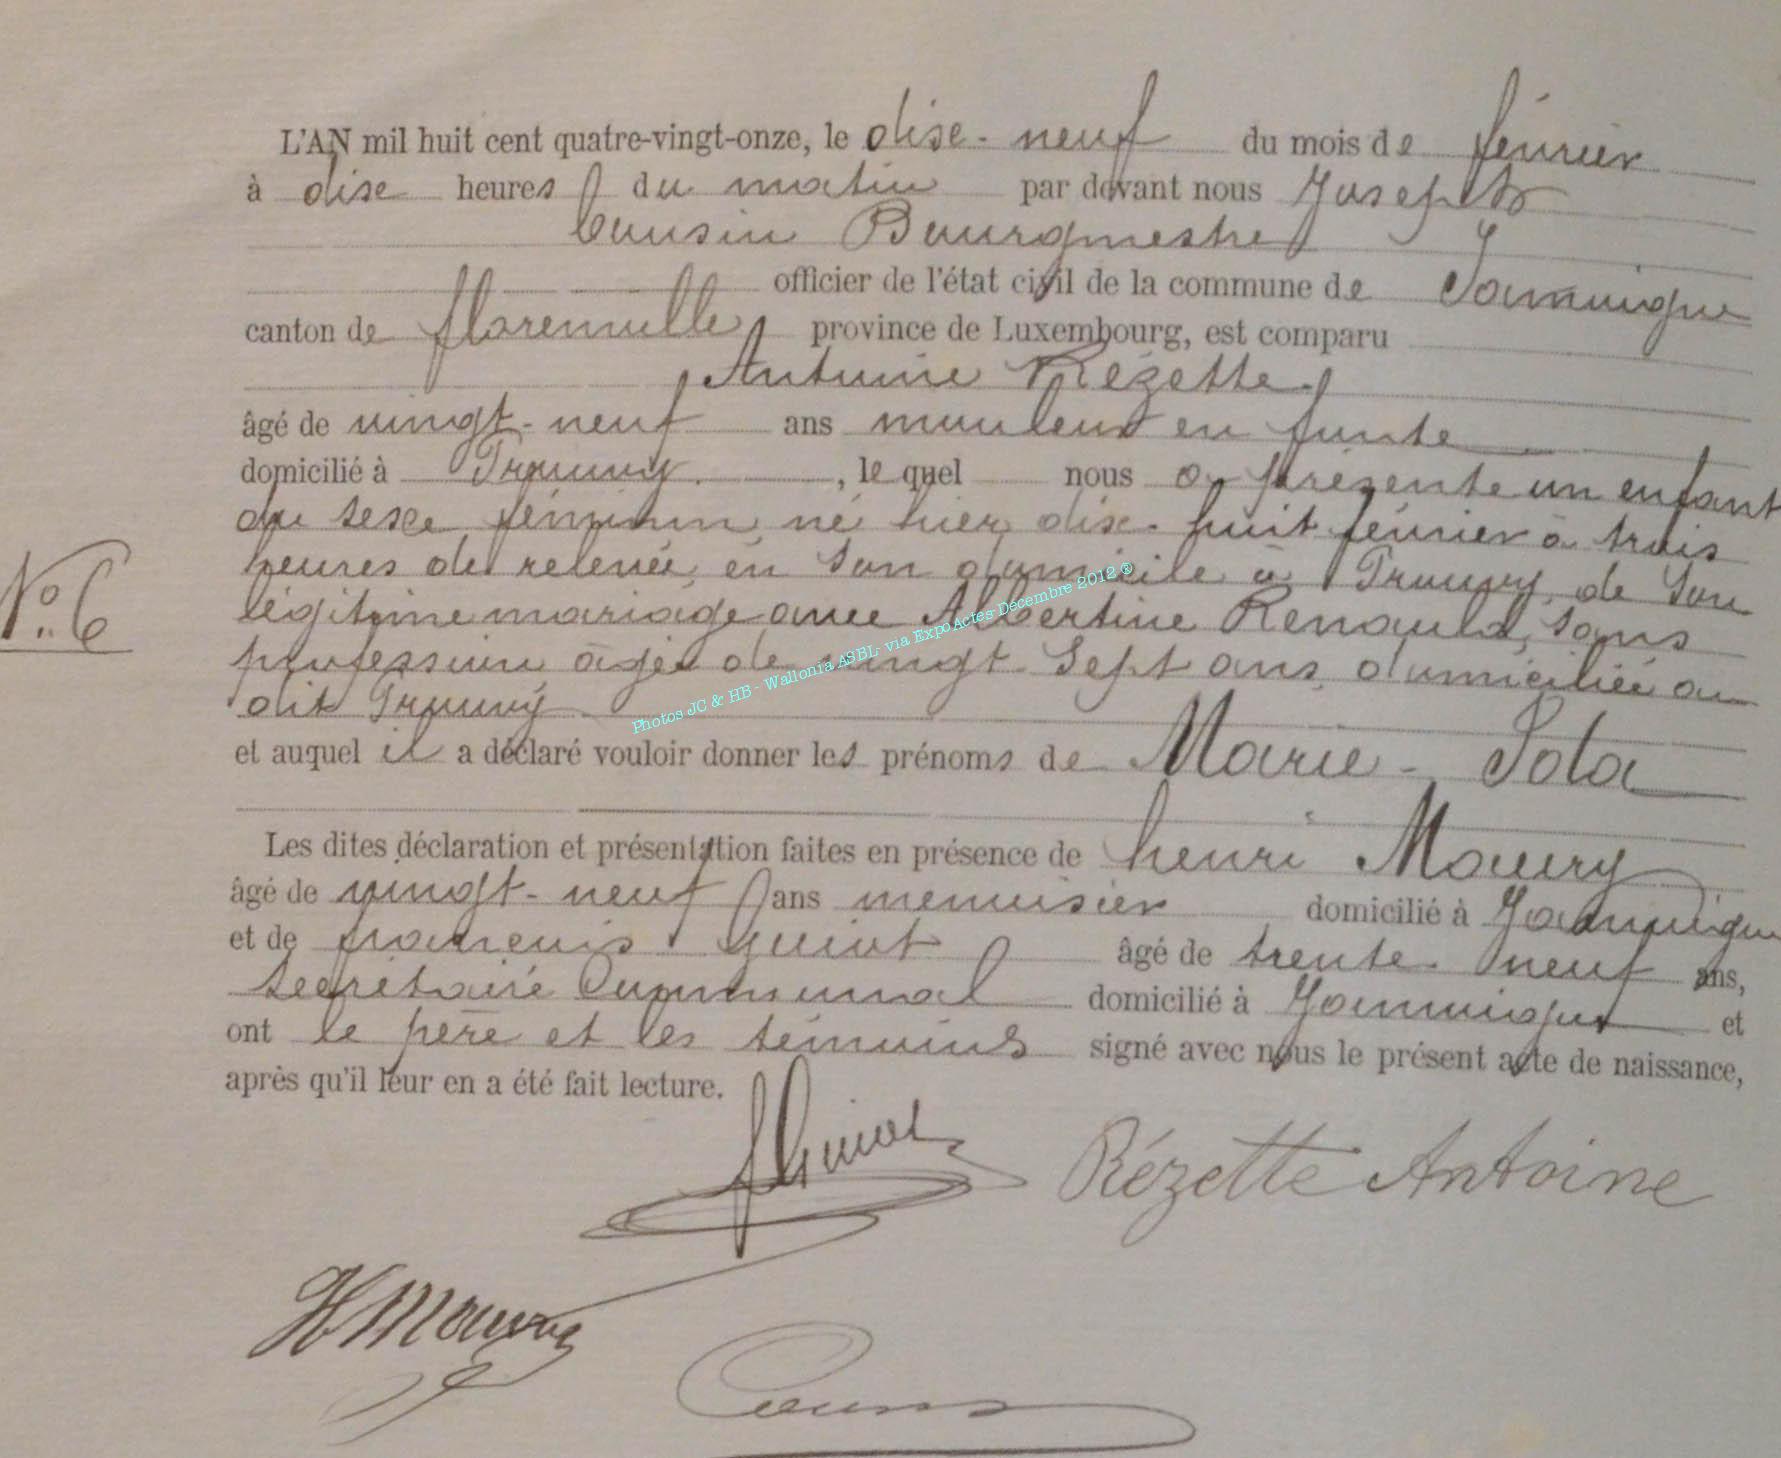 L'AN mil huit cent quatre-vingt-onze, le dise-neuf du mois de février
à dise heures du matin par devant nous Joseph
Cousin Bourgmestre
officier de l'état civil de la commune de Jamoigne
canton de florenville province de Luxembourg, est comparu
Antoine Rézette
âgé de vingt-neuf ans mouleur en fonte
domicilié à Prouvy, le quel nous a présenté un enfant
du sexe féminin né hier dix-huit février à trois
heures de relevée, en son domicile à Prouvy, de son
légitime mariage avec Albertine Renauld, sans
profession âgée de vingt sept ans, domiciliée au
dit Prouvy
N° 6
et auquel il a déclaré vouloir donner les prénoms de Marie-
Les dites déclaration et présentation faites en présence de henri Maury
âgé de vingt-neuf ans menuisier domicilié à Jamoigne
et de francois guiot âgé de trente neuf ans,
secrétaire Communal domicilié à Jamoigne et
ont le père et les témoins signé avec nous le présent acte de naissance,
après qu'il leur en a été fait lecture.
Rézette Antoine
H Maury
Photos JC & HB - Wallonia ASBL- via ExpoActes-Décembre 2012 ®